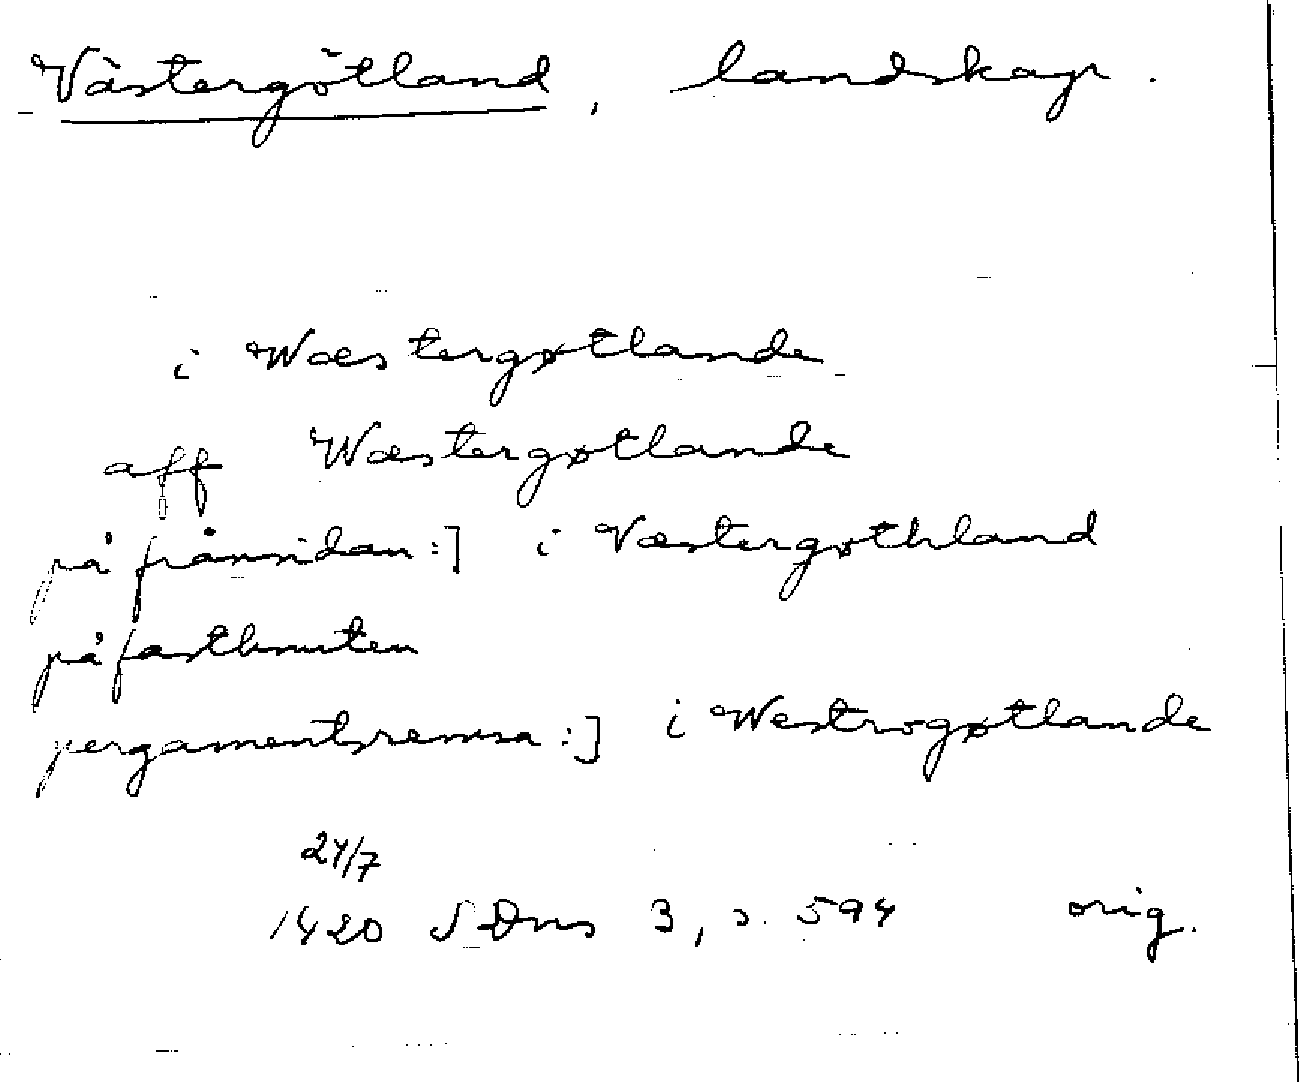 Västergötland, landskap.
i Wæstergøtlande
aff Wæstergøtlande
på frånsidan:] i Væstergøthland
på fastknuten
pergamentsremsa:] i Westrogøtlande
24/7
1420 SDns 3, s. 594 orig.